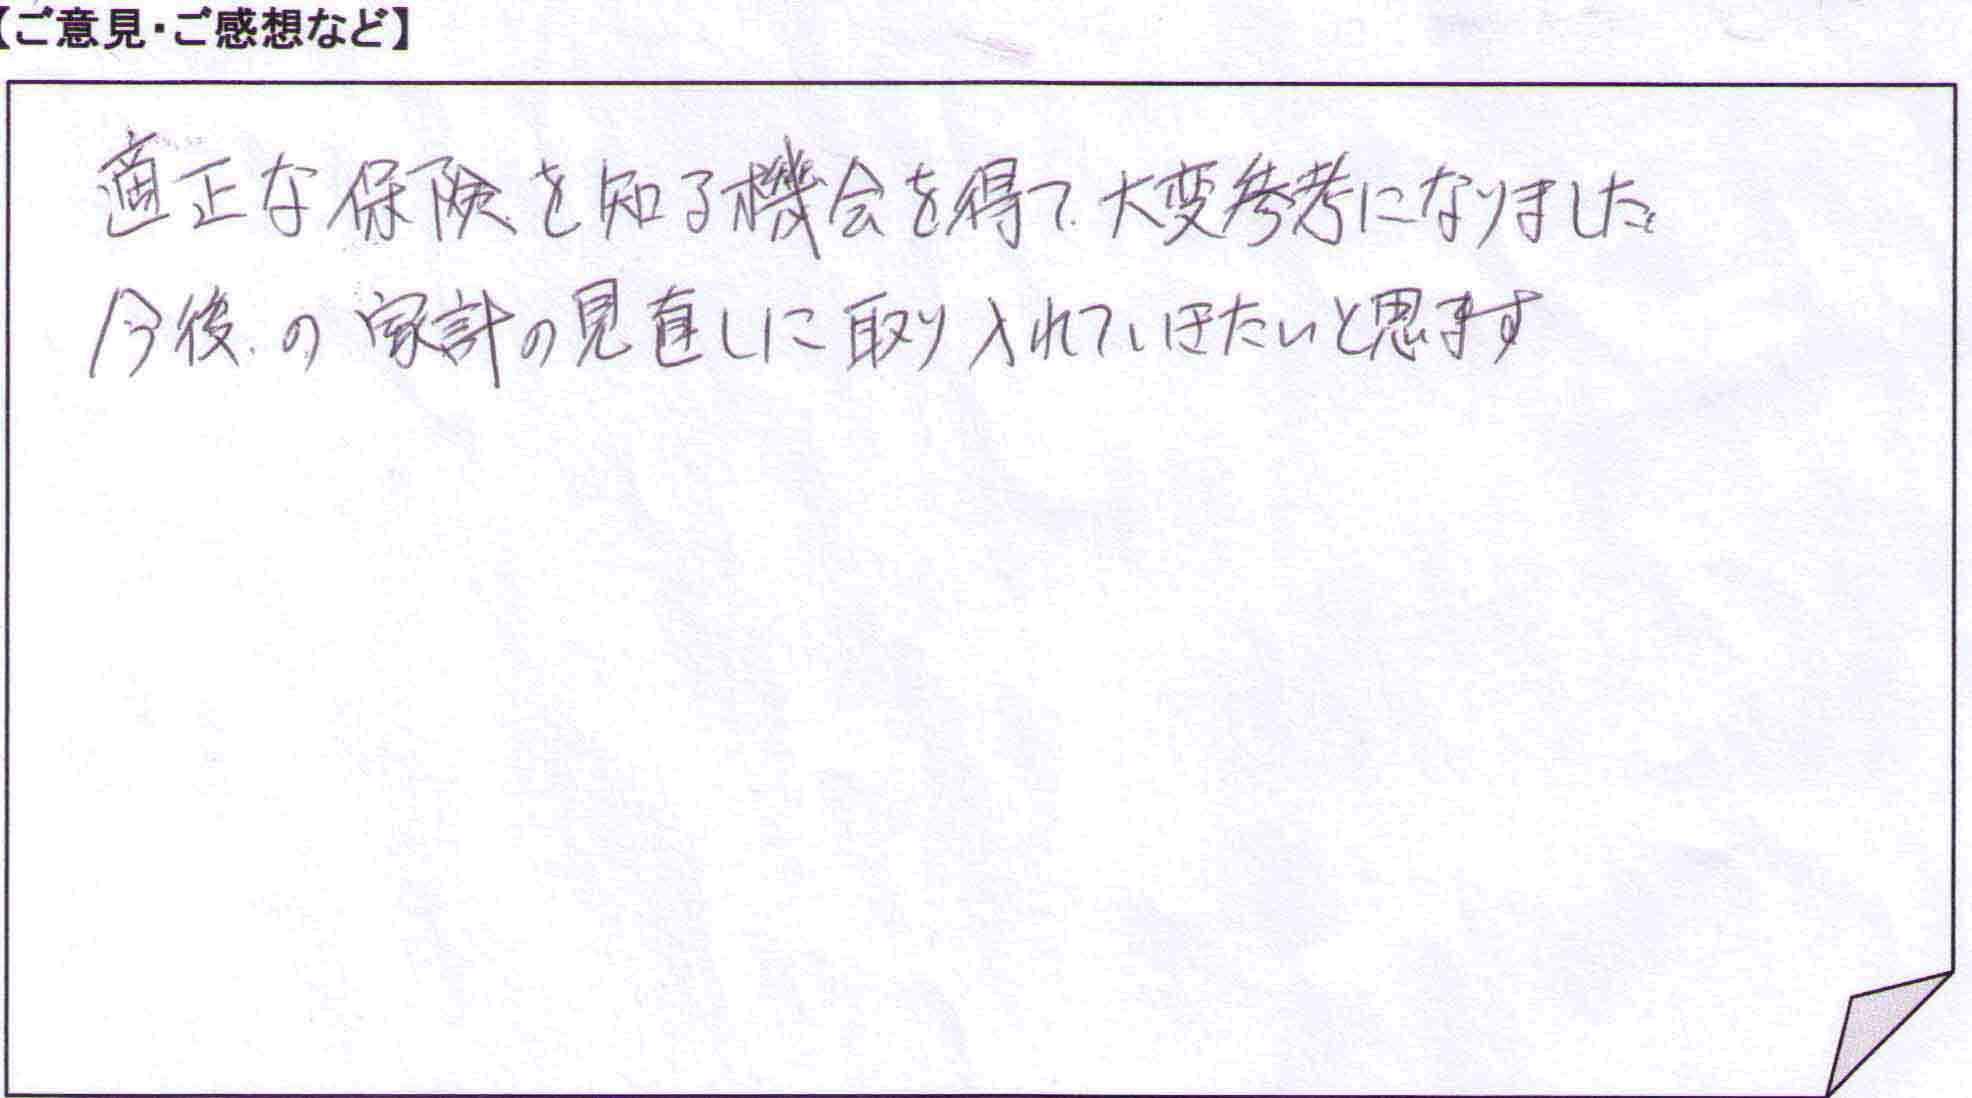 【ご意見・ご感想など】
適正な保険を知る機会を得て大変参考になりました。
今後の家計の見直しに取り入れていきたいと思ます